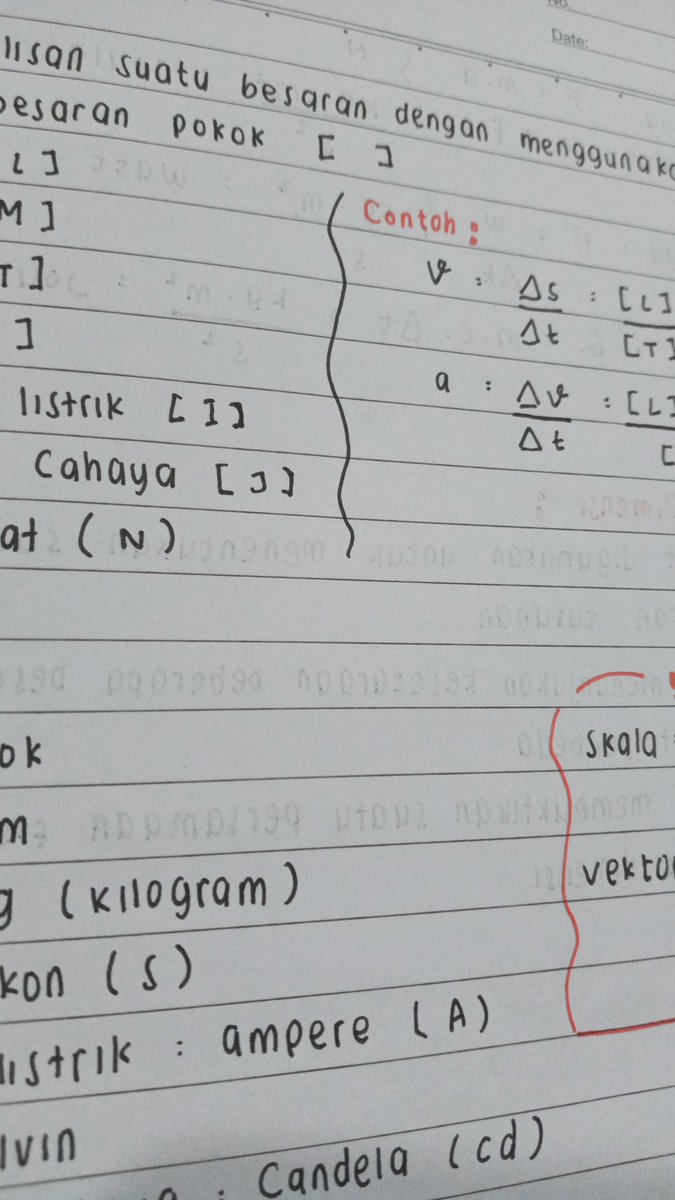 No.
Date:
lisan suatu besaran dengan menggunaka
besaran pokok [ ]
L]
M]
T]
]
listrik [I]
Cahaya [J]
at (N)
Contoh :
v : Δs/Δt : [L]/[T]
a : Δv/Δt : [L]/[
ok
m
g (kilogram)
kon (s)
listrik : ampere (A)
lvin
: Candela (cd)
skala
vekto